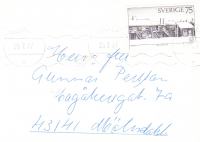 SVERIGE 75
Herr fru
Gunnar Persson
Hagåkersgat. 7a
43141 Mölndal